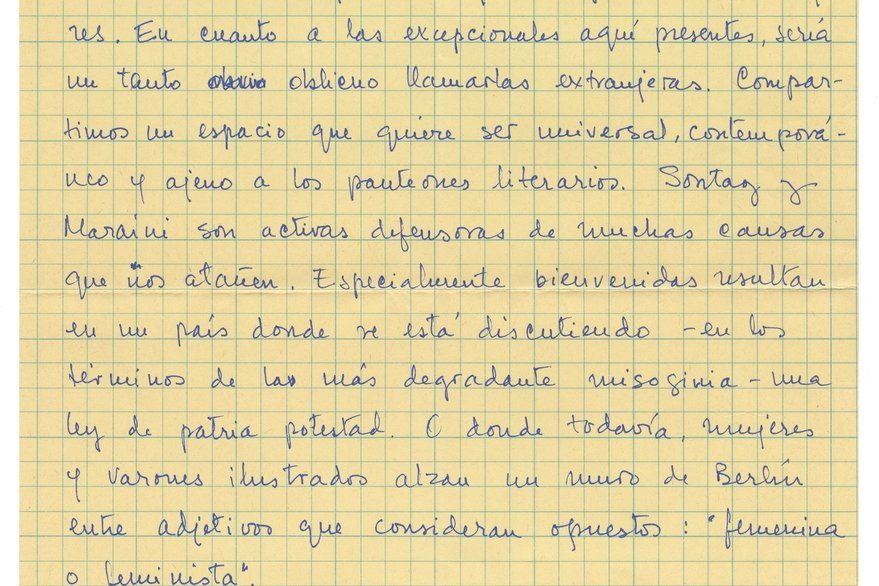 res. En cuanto a las excepcionales aquí presentes, sería
un tanto oblicuo llamarlas extranjeras. Compar-
timos un espacio que quiere ser universal, contemporá-
neo y ajeno a los panteones literarios. Sontag y
Maraini son activas defensoras de muchas causas
que nos atañen. Especialmente bienvenidas resultan
en un país donde se está discutiendo -en los
términos de la más degradante misoginia- una
ley de patria potestad. O donde todavía, mujeres
y varones ilustrados alzan un muro de Berlín
entre adjetivos que consideran opuestos: "femenina
o feminista".